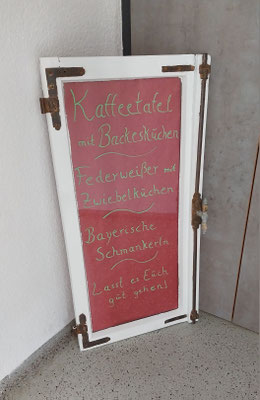 Kaffeetafel
mit Backesküchen
Federweißer mit
Zwiebelküchen
Bayerische
Schmankerln
Lasst es Euch
gut gehen!